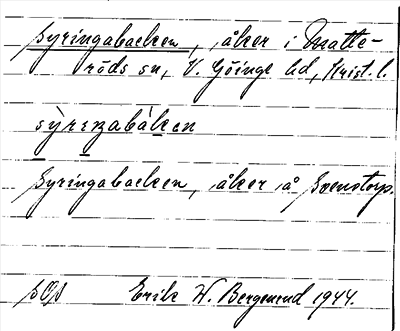 Syringabacken, åker i Matte-
röds sn, V. Göinge hd, Krist. l.
sỳrezabàken
Syringabacken, åker å Svenstorp.
SOS Erik W. Bergenrud 1944.